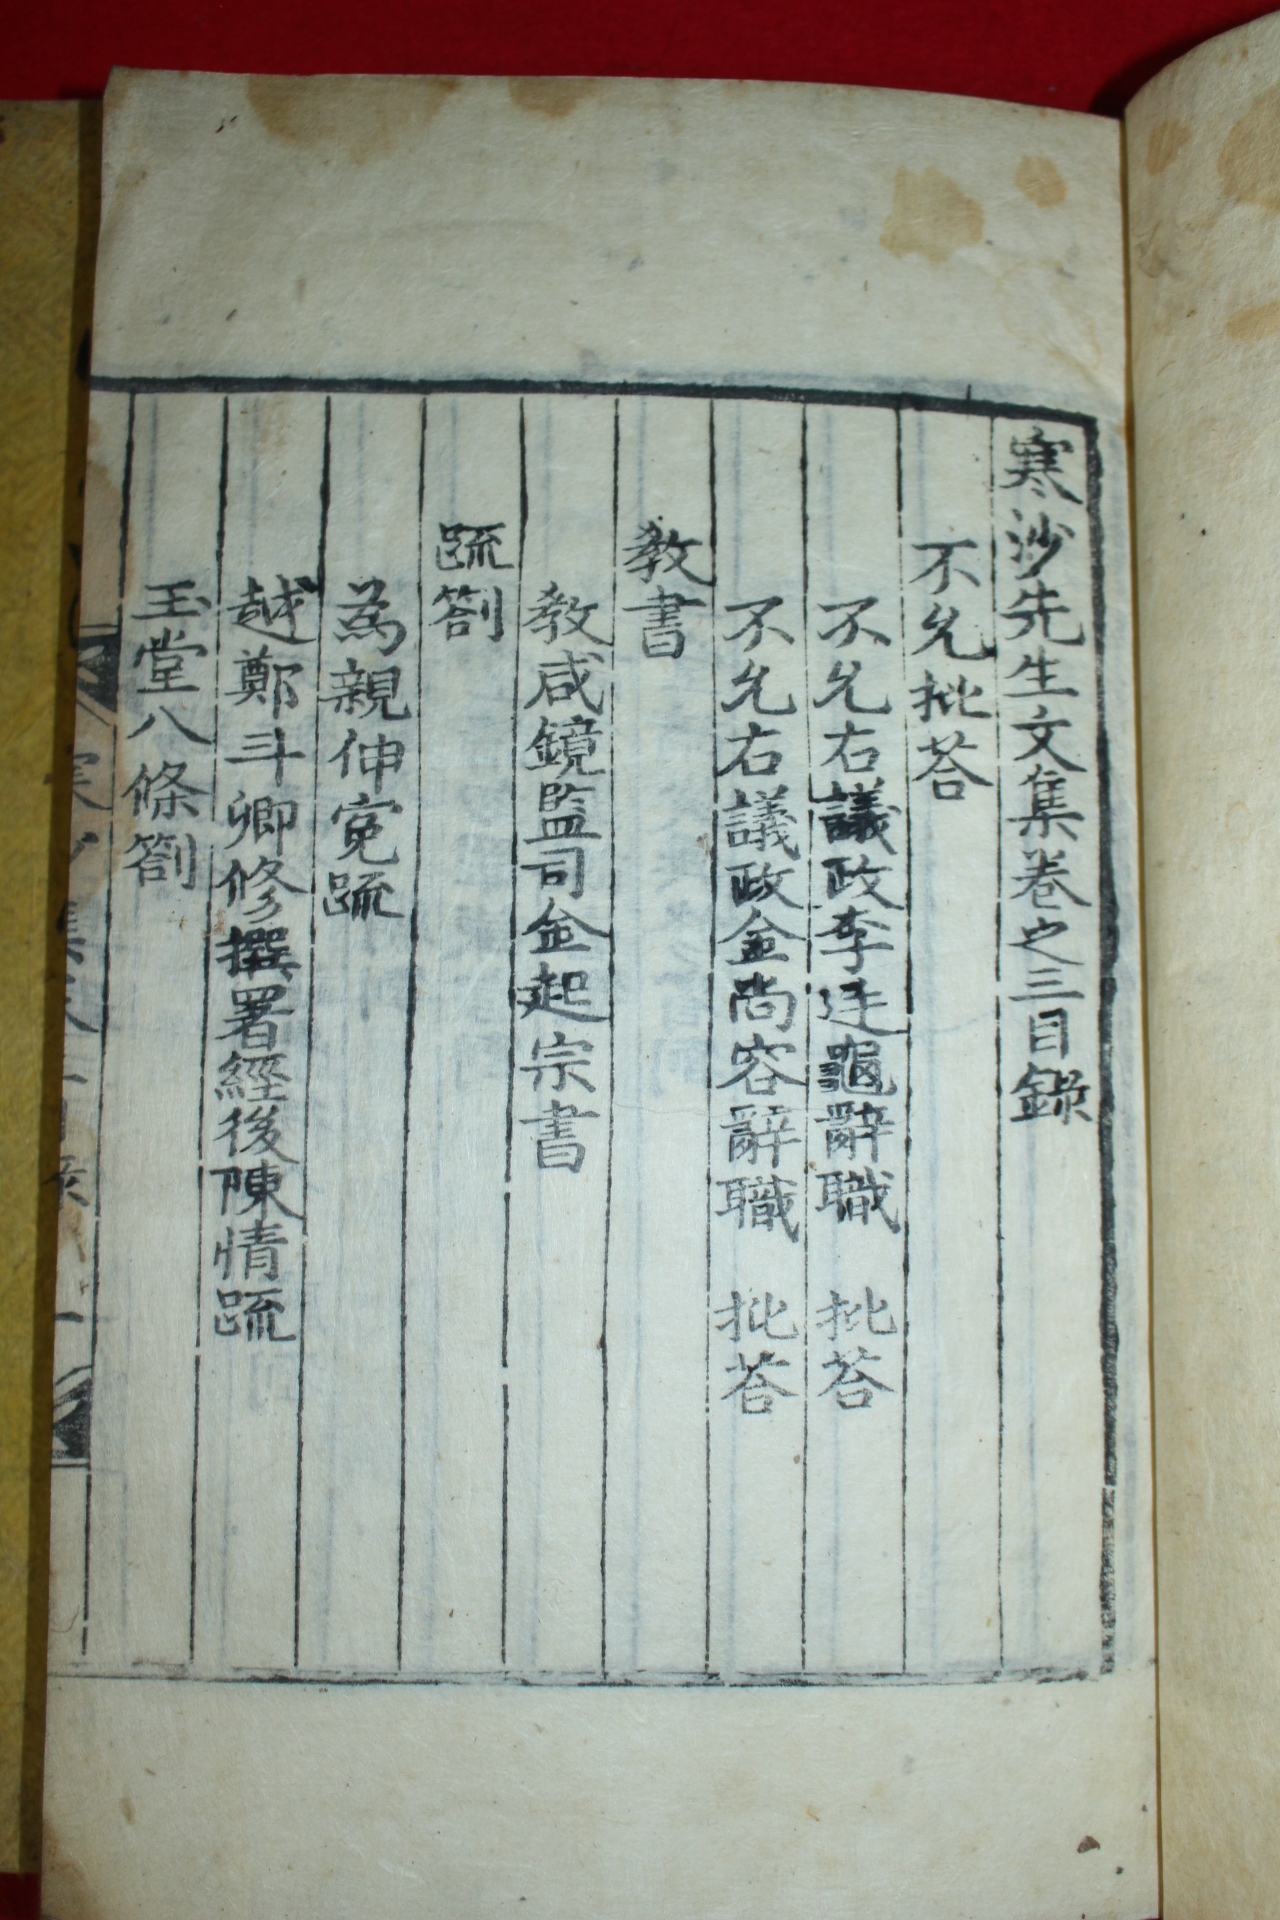 寒沙先生文集卷之三目錄
不允批荅
不允右議政李廷龜辭職 批荅
不允右議政金尚容辭職 批荅
敎書
敎咸鏡監司金起宗書
䟽劄
爲親伸寃䟽
越鄭斗卿修撰署經後陳情䟽
玉堂八條劄